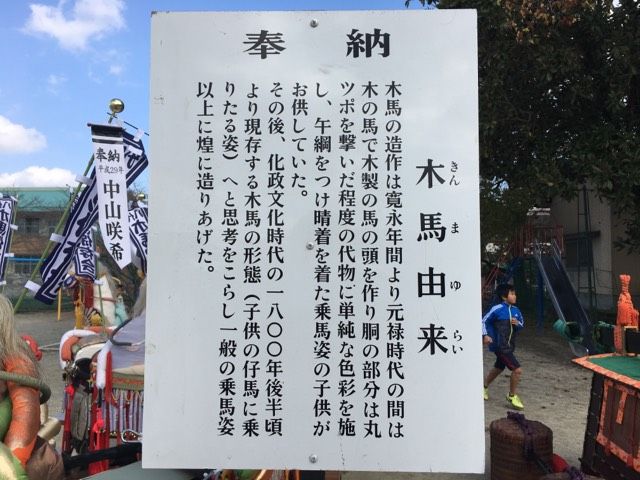 奉納
木馬由来
きんまゆらい
木馬の造作は寛永年間より元禄時代の間は
木の馬で木製の馬の頭を作り胴の部分は丸
ツポを撃いだ程度の代物に単純な色彩を施
し、午綱をつけ晴着を着た乗馬姿の子供が
お供していた。
その後、化政文化時代の一八〇〇年後半頃
より現存する木馬の形態(子供の仔馬に乗
りたる姿)へと思考をこらし一般の乗馬姿
以上に煌に造りあげた。
奉納
平成29年
中山咲希